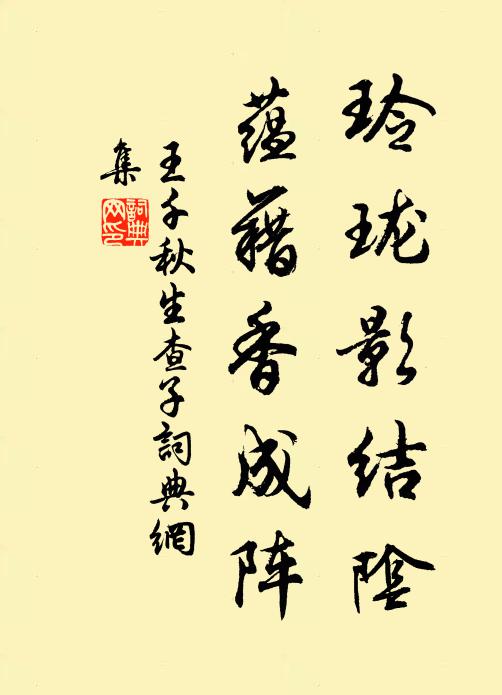 玲珑影结阴
蕴藉香成阵
王千秋生查子詞典網
集
詞典
网印